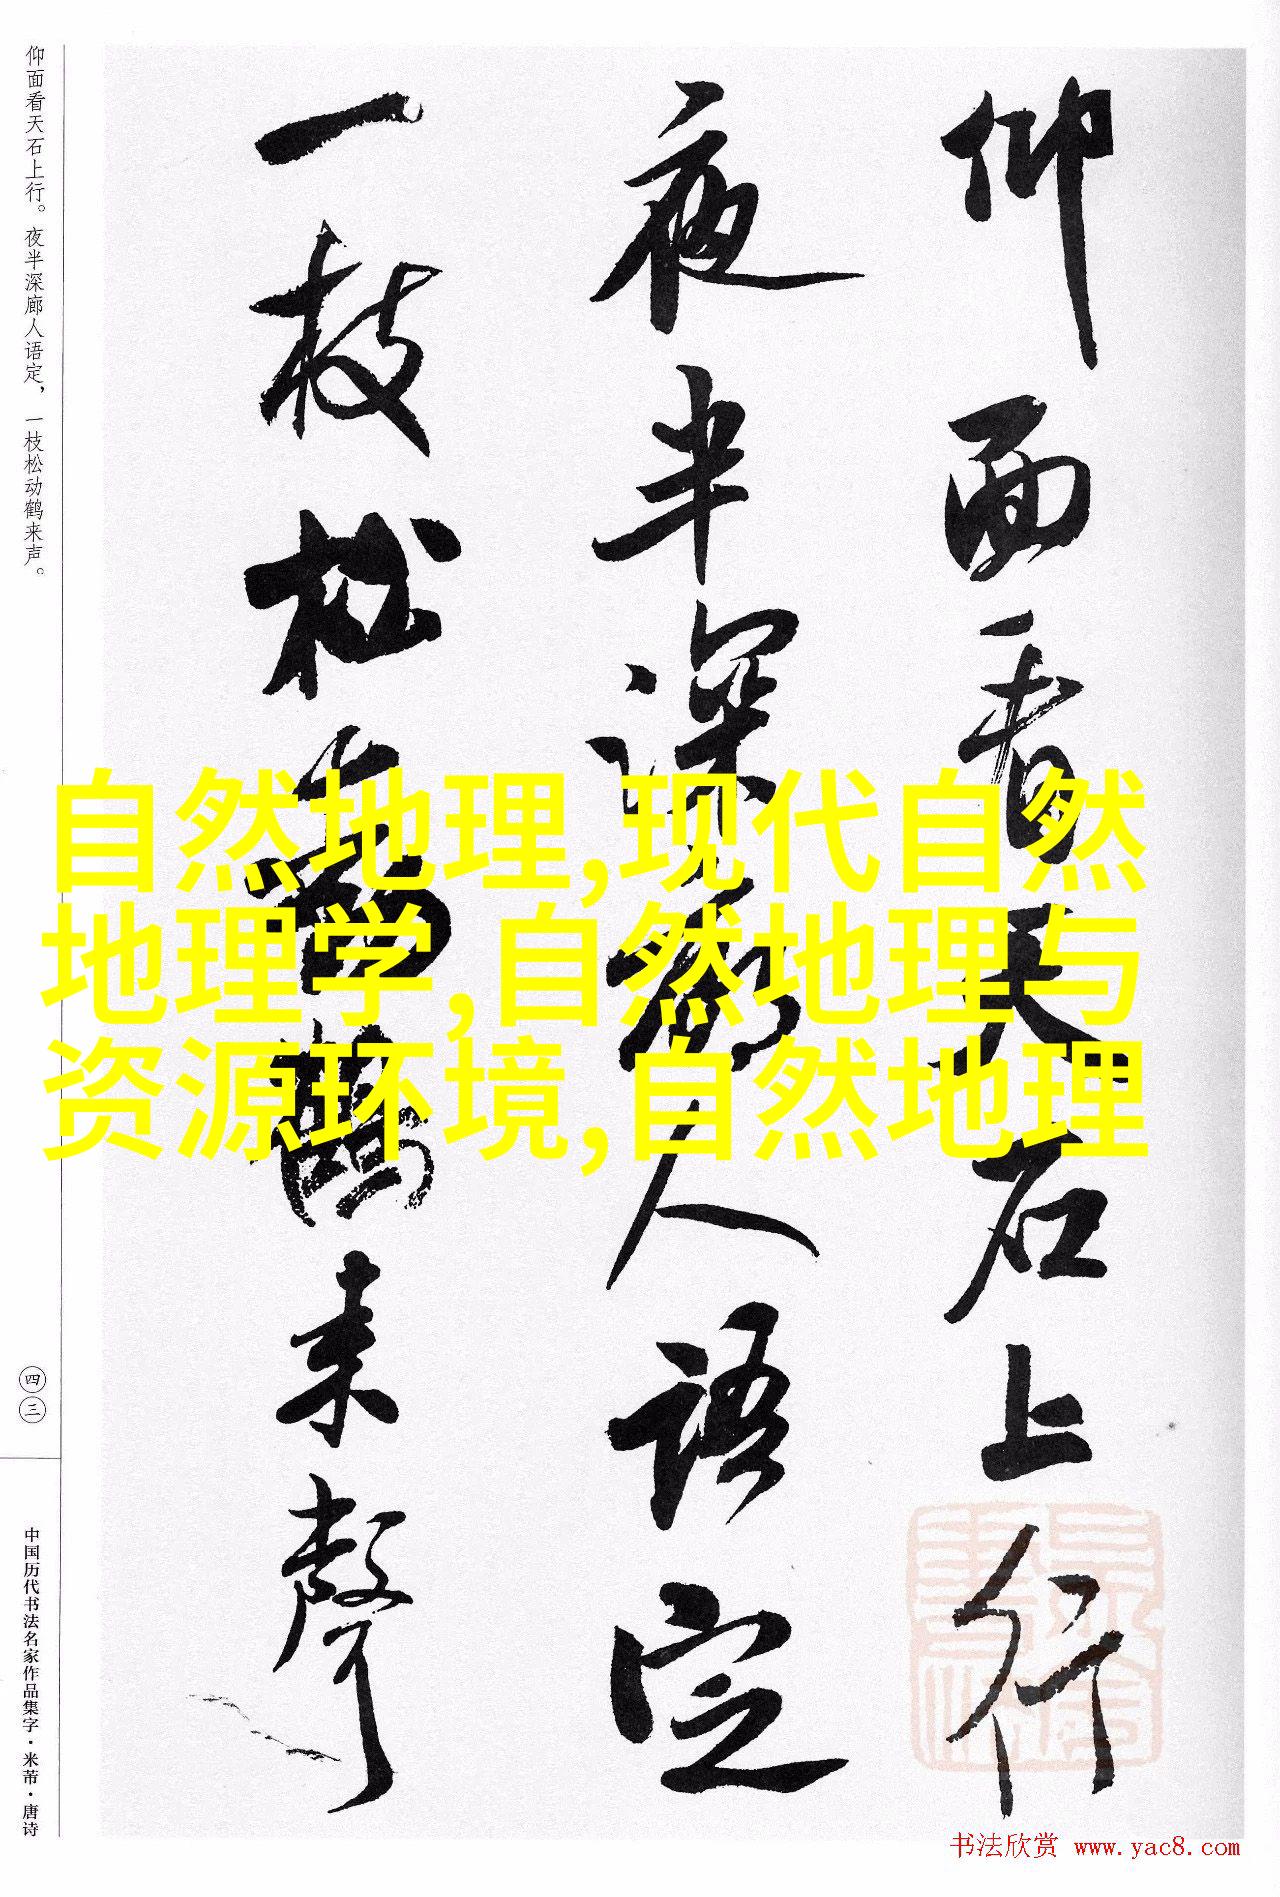 仰面看天石上行
夜半深廊人语定
一枝松動鶴来聲
仰面看天石上行。夜半深廊人语定，一枝松动鹤来声。
四三
中国历代书法名家作品集字·米芾·唐诗
自然地理,现代自然
地理学,自然地理与
资源环境,自然地理
书法欣赏 www.yac8.com